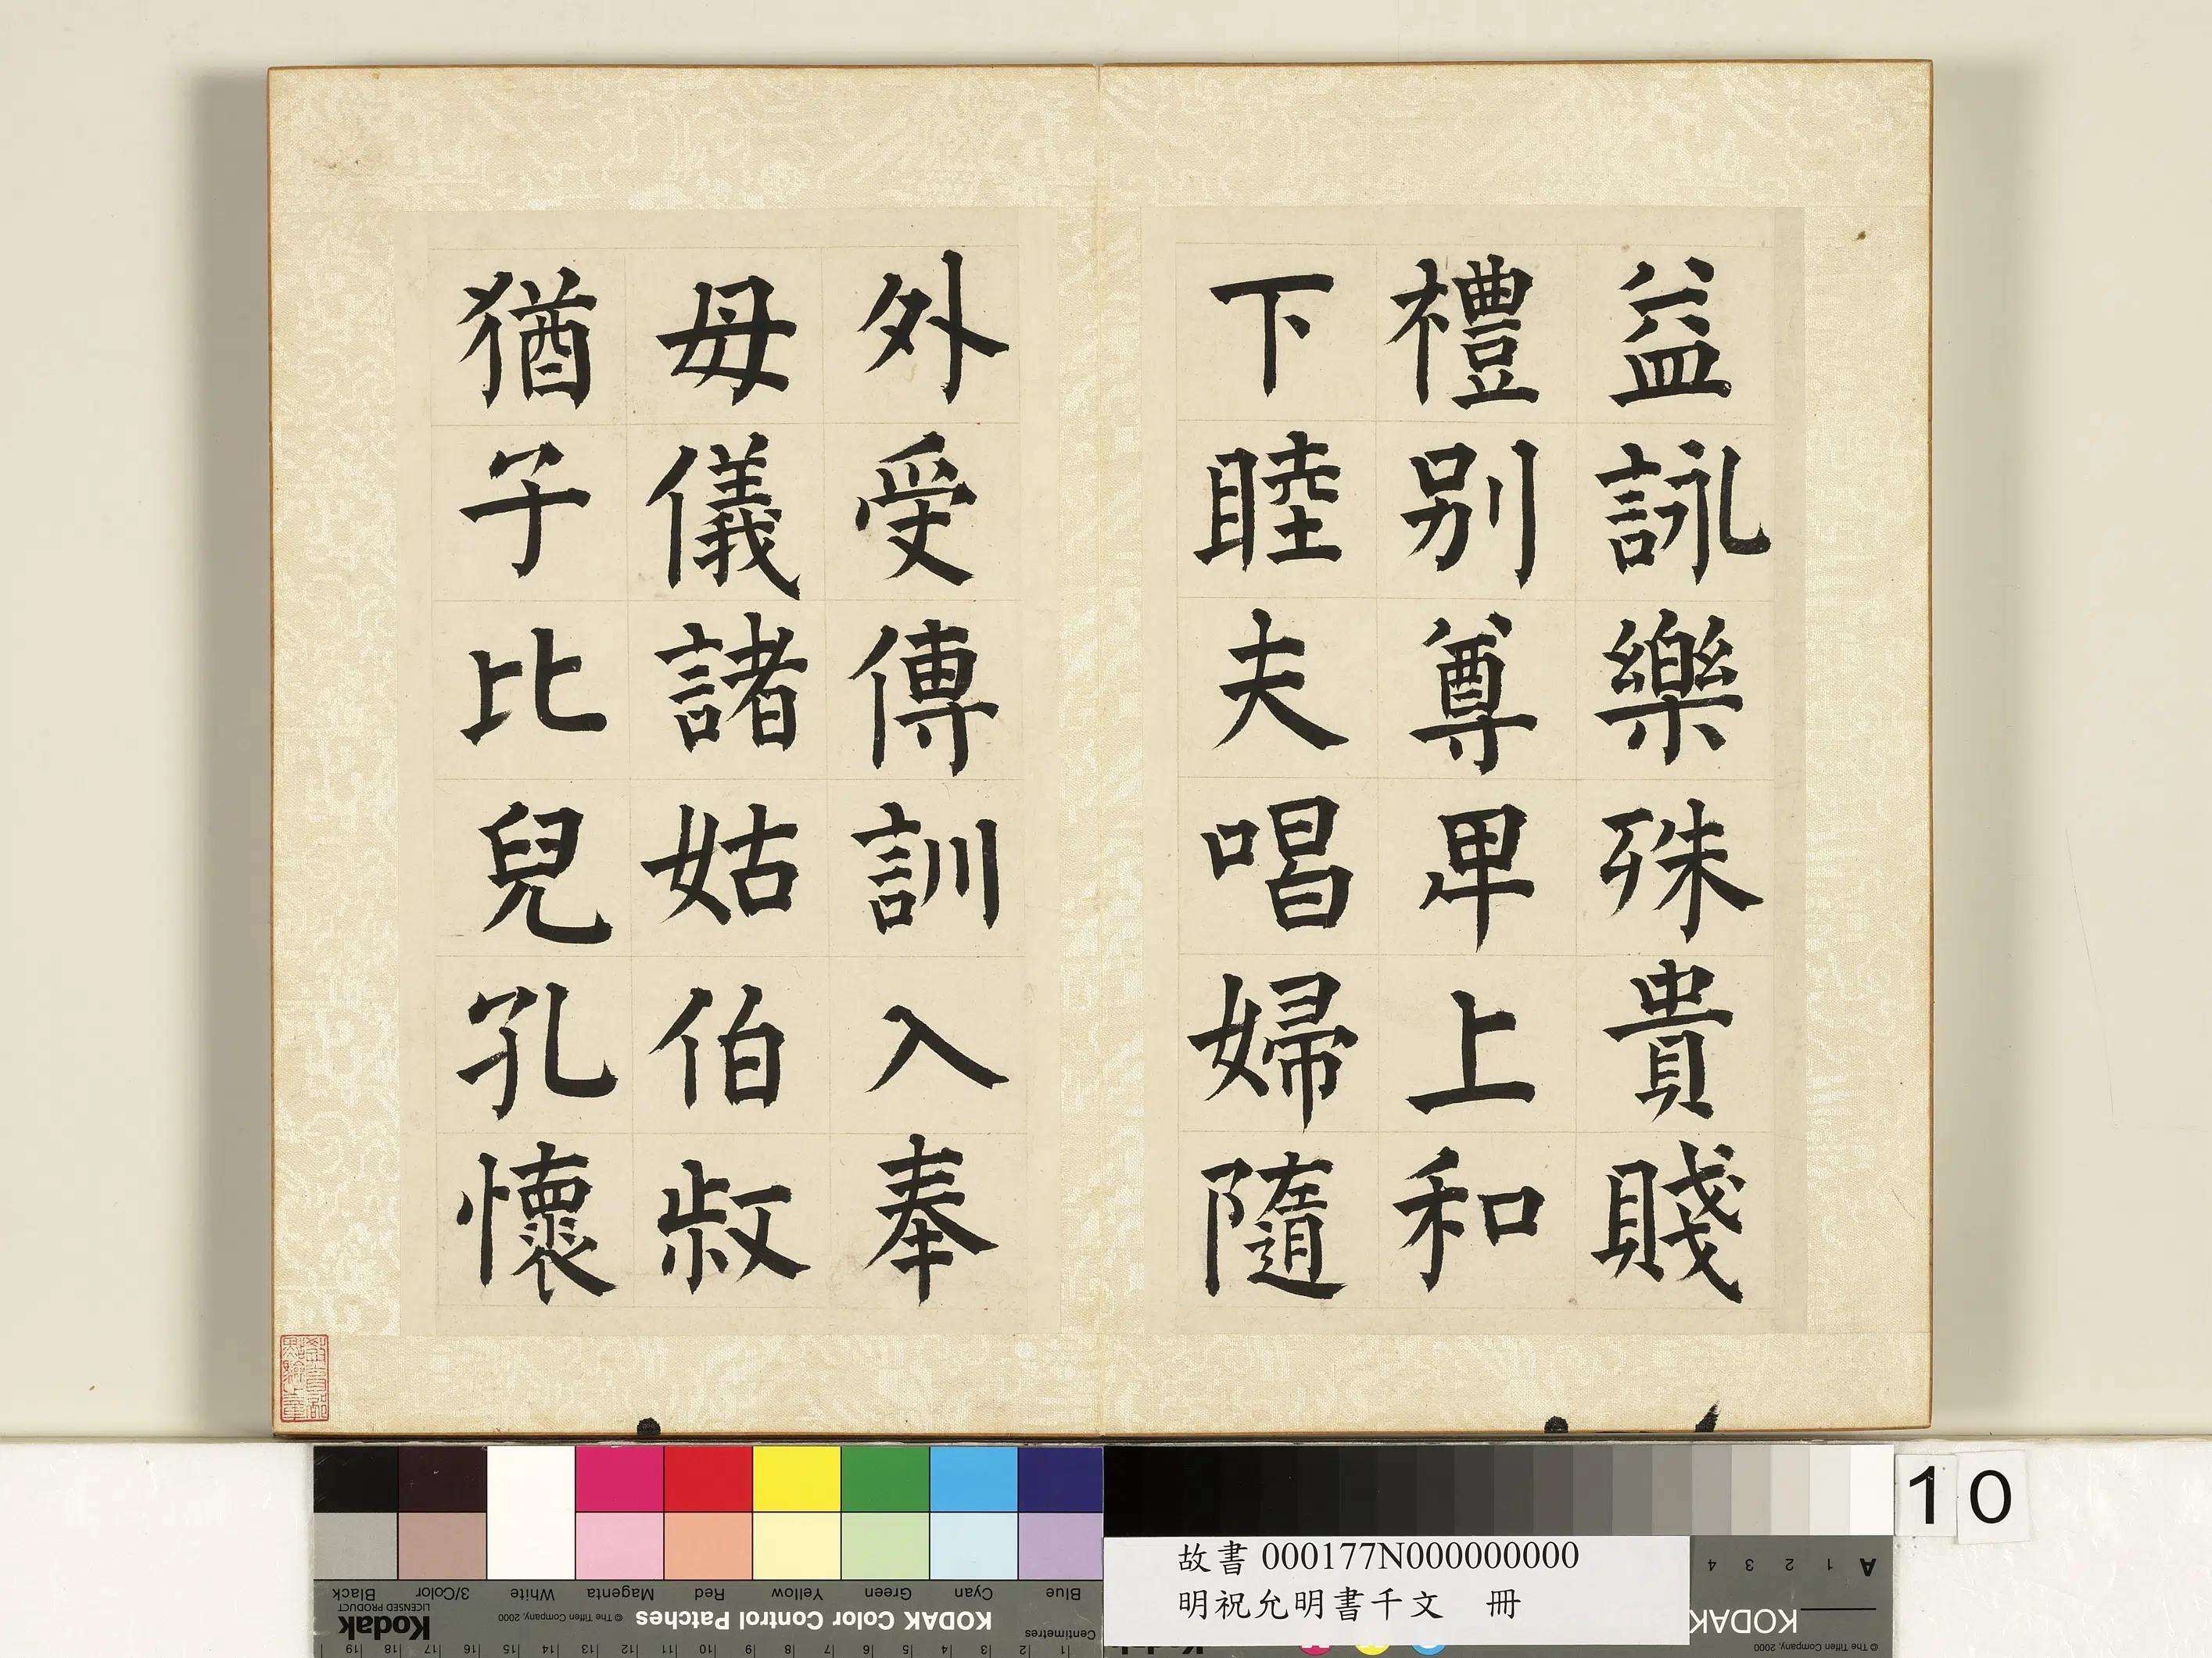 益詠樂殊貴賤
禮别尊卑上和
下睦夫唱婦隨
外受傅訓入奉
母儀諸姑伯叔
猶子比兒孔懷
10
故書 000177N000000000
明祝允明書千文 冊
Blue Cyan Green Yellow Red Magenta White 3/Color Black
KODAK Color Control Patches © The Tiffen Company, 2000
Kodak
LICENSED PRODUCT
Centimetres 1 2 3 4 5 6 7 8 9 10 11 12 13 14 15 16 17 18 19
A 1 2 3 4
KODAK
© The Tiffen Company, 2000